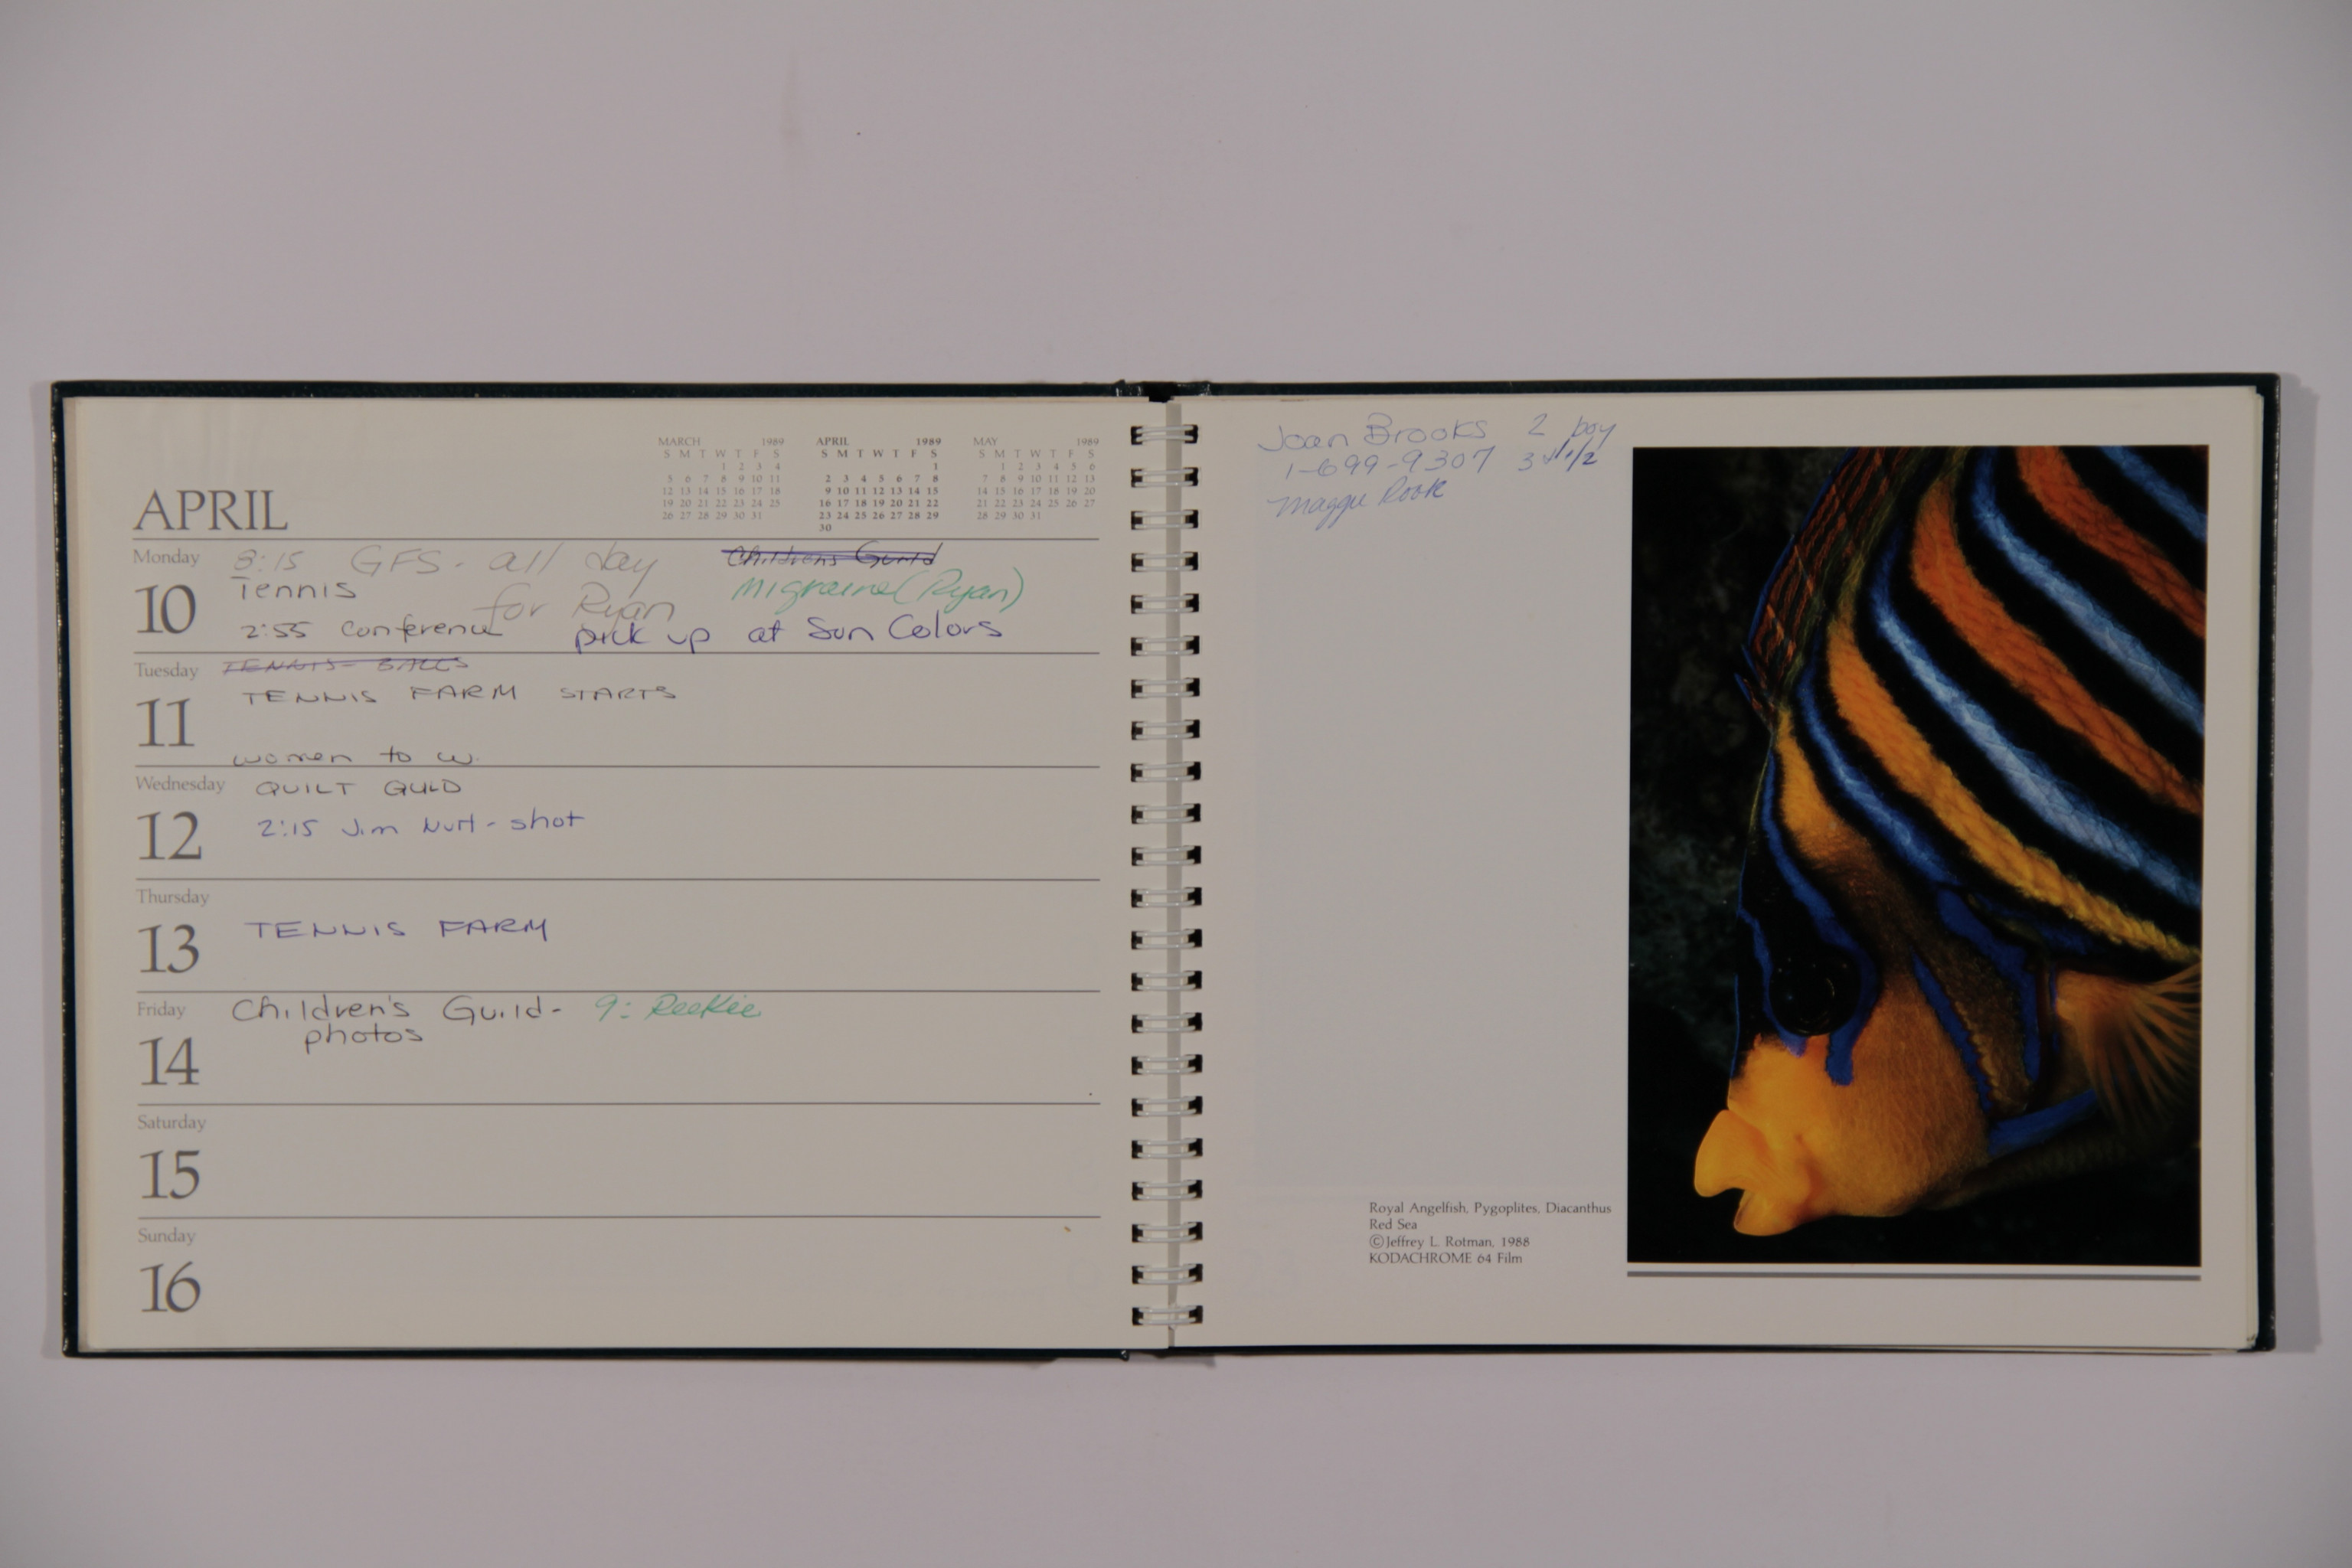 MARCH 1989
S M T W T F S
1 2 3 4
5 6 7 8 9 10 11
12 13 14 15 16 17 18
19 20 21 22 23 24 25
26 27 28 29 30 31
APRIL 1989
S M T W T F S
1
2 3 4 5 6 7 8
9 10 11 12 13 14 15
16 17 18 19 20 21 22
23 24 25 26 27 28 29
30
MAY 1989
S M T W T F S
1 2 3 4 5 6
7 8 9 10 11 12 13
14 15 16 17 18 19 20
21 22 23 24 25 26 27
28 29 30 31
APRIL
Monday
10
8:15 GFS - all day
Childrens Guild
Tennis
for Ryan
Migraine (Ryan)
2:55 Conference
pick up at Sun Colors
Tuesday
11
TENNIS - BALLS
TENNIS FARM STARTS
women to w.
Wednesday
12
QUILT GULD
2:15 Jim - shot
Thursday
13
TENNIS FARM
Friday
14
Children's Guild - 9: Reekie
photos
Saturday
15
Sunday
16
Joan Brooks 2 boy
1-699-9307 3 1/2
Maggie
Royal Angelfish, Pygoplites, Diacanthus
Red Sea
©Jeffrey L. Rotman, 1988
KODACHROME 64 Film